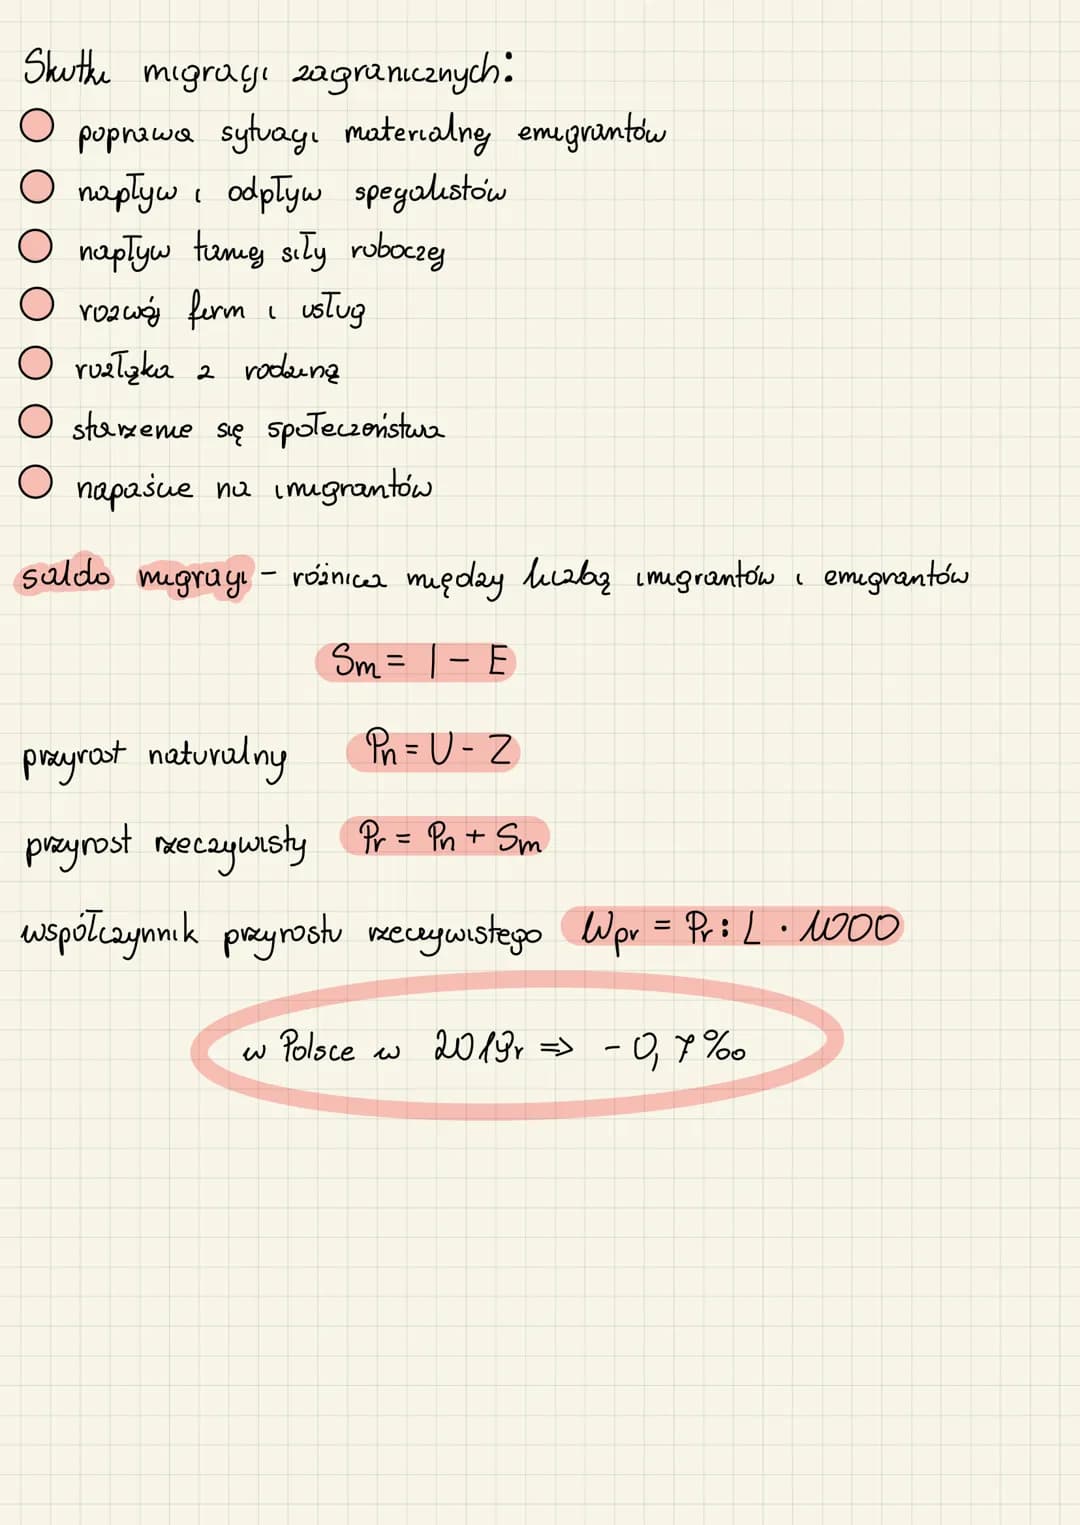 Skutki migracji zagranicznych:
poprawa sytuacji materialnej emigrantów
napływ i odpływ specjalistów
napływ taniej siły roboczej
rozwój firm i usług
rozłąka z rodziną
starzenie się społeczeństwa
napaście na imigrantów
saldo migracji - różnica między liczbą imigrantów i emigrantów
Sm = I - E
przyrost naturalny Pn = U - Z
przyrost rzeczywisty Pr = Pn + Sm
współczynnik przyrostu rzeczywistego Wpr = Pr : L · 1000
w Polsce w 2019r => - 0,7‰